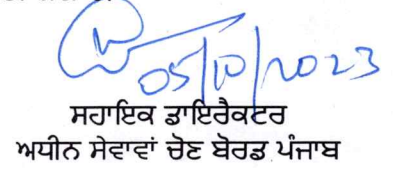 05/10/2023
ਸਹਾਇਕ ਡਾਇਰੈਕਟਰ
ਅਧੀਨ ਸੇਵਾਵਾਂ ਚੋਣ ਬੋਰਡ ਪੰਜਾਬ